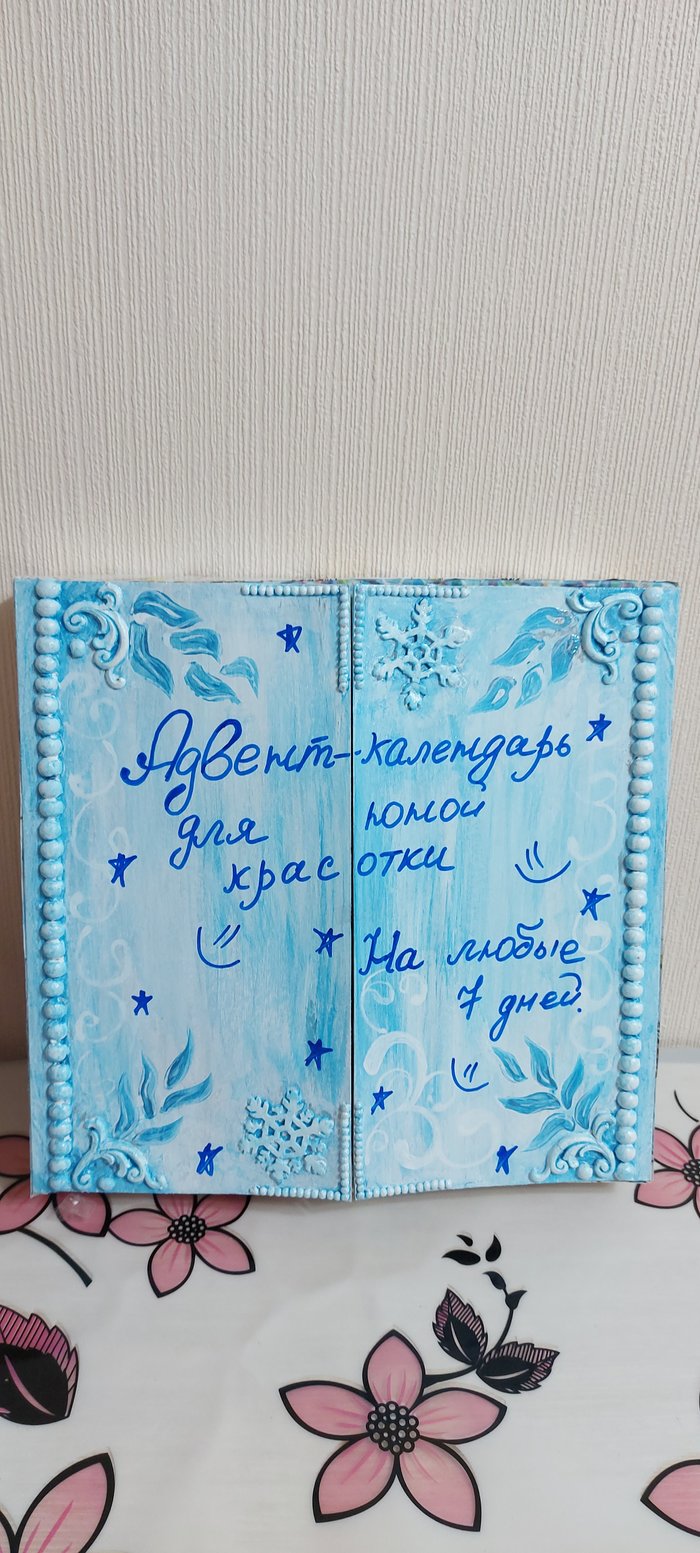 Адвент-календарь
для юной
красотки
На любые
7 дней.